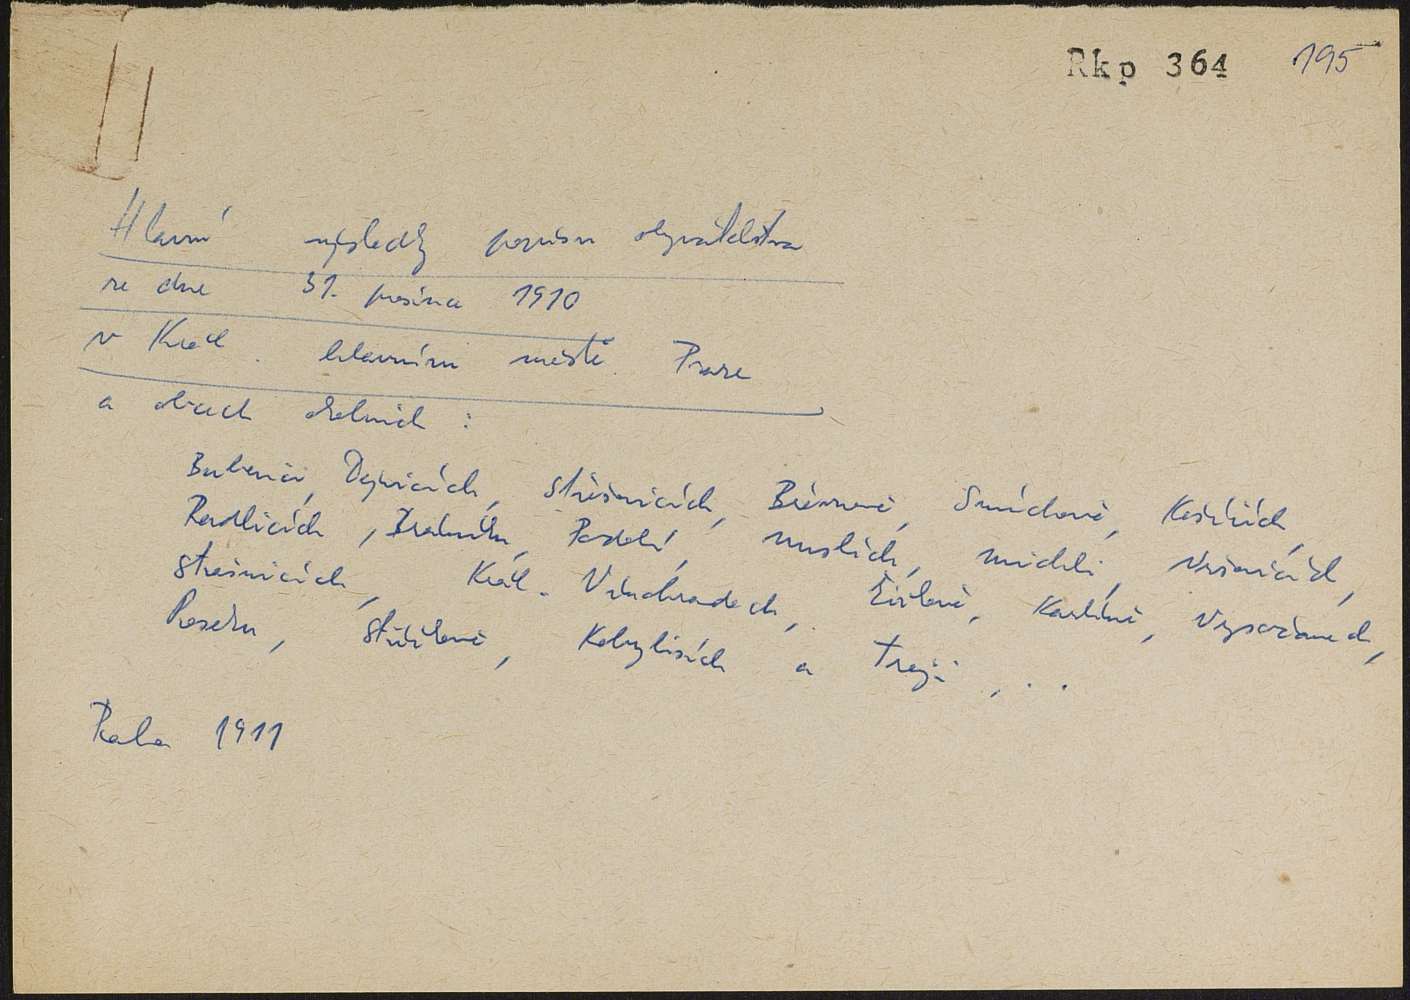 Rkp 364 195
Hlavní výsledky popisu obyvatelstva
ze dne 31. prosince 1910
v Král. hlavním městě Praze
a obcích okolních :
Bubenči, Dejvicích, Střešovicích, Břevnově, Smíchově, Košířích,
Radlicích, Braníku, Podolí, Nuslích, Michli, Vršovicích,
Strašnicích, Král. Vinohradech, Žižkově, Karlíně, Vysočanech,
Proseku, Střížkově, Kobylisích a Troji, ..
Praha 1911